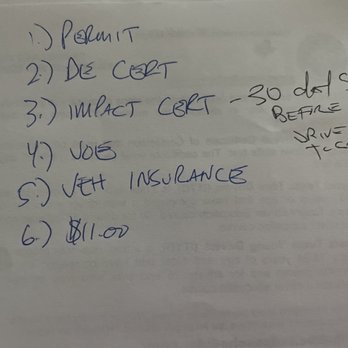 1.) PERMIT
2.) DE CERT
3.) IMPACT CERT - 30 days
BEFORE
DRIVE
4.) VOE
5.) VEH INSURANCE
6.) $11.00